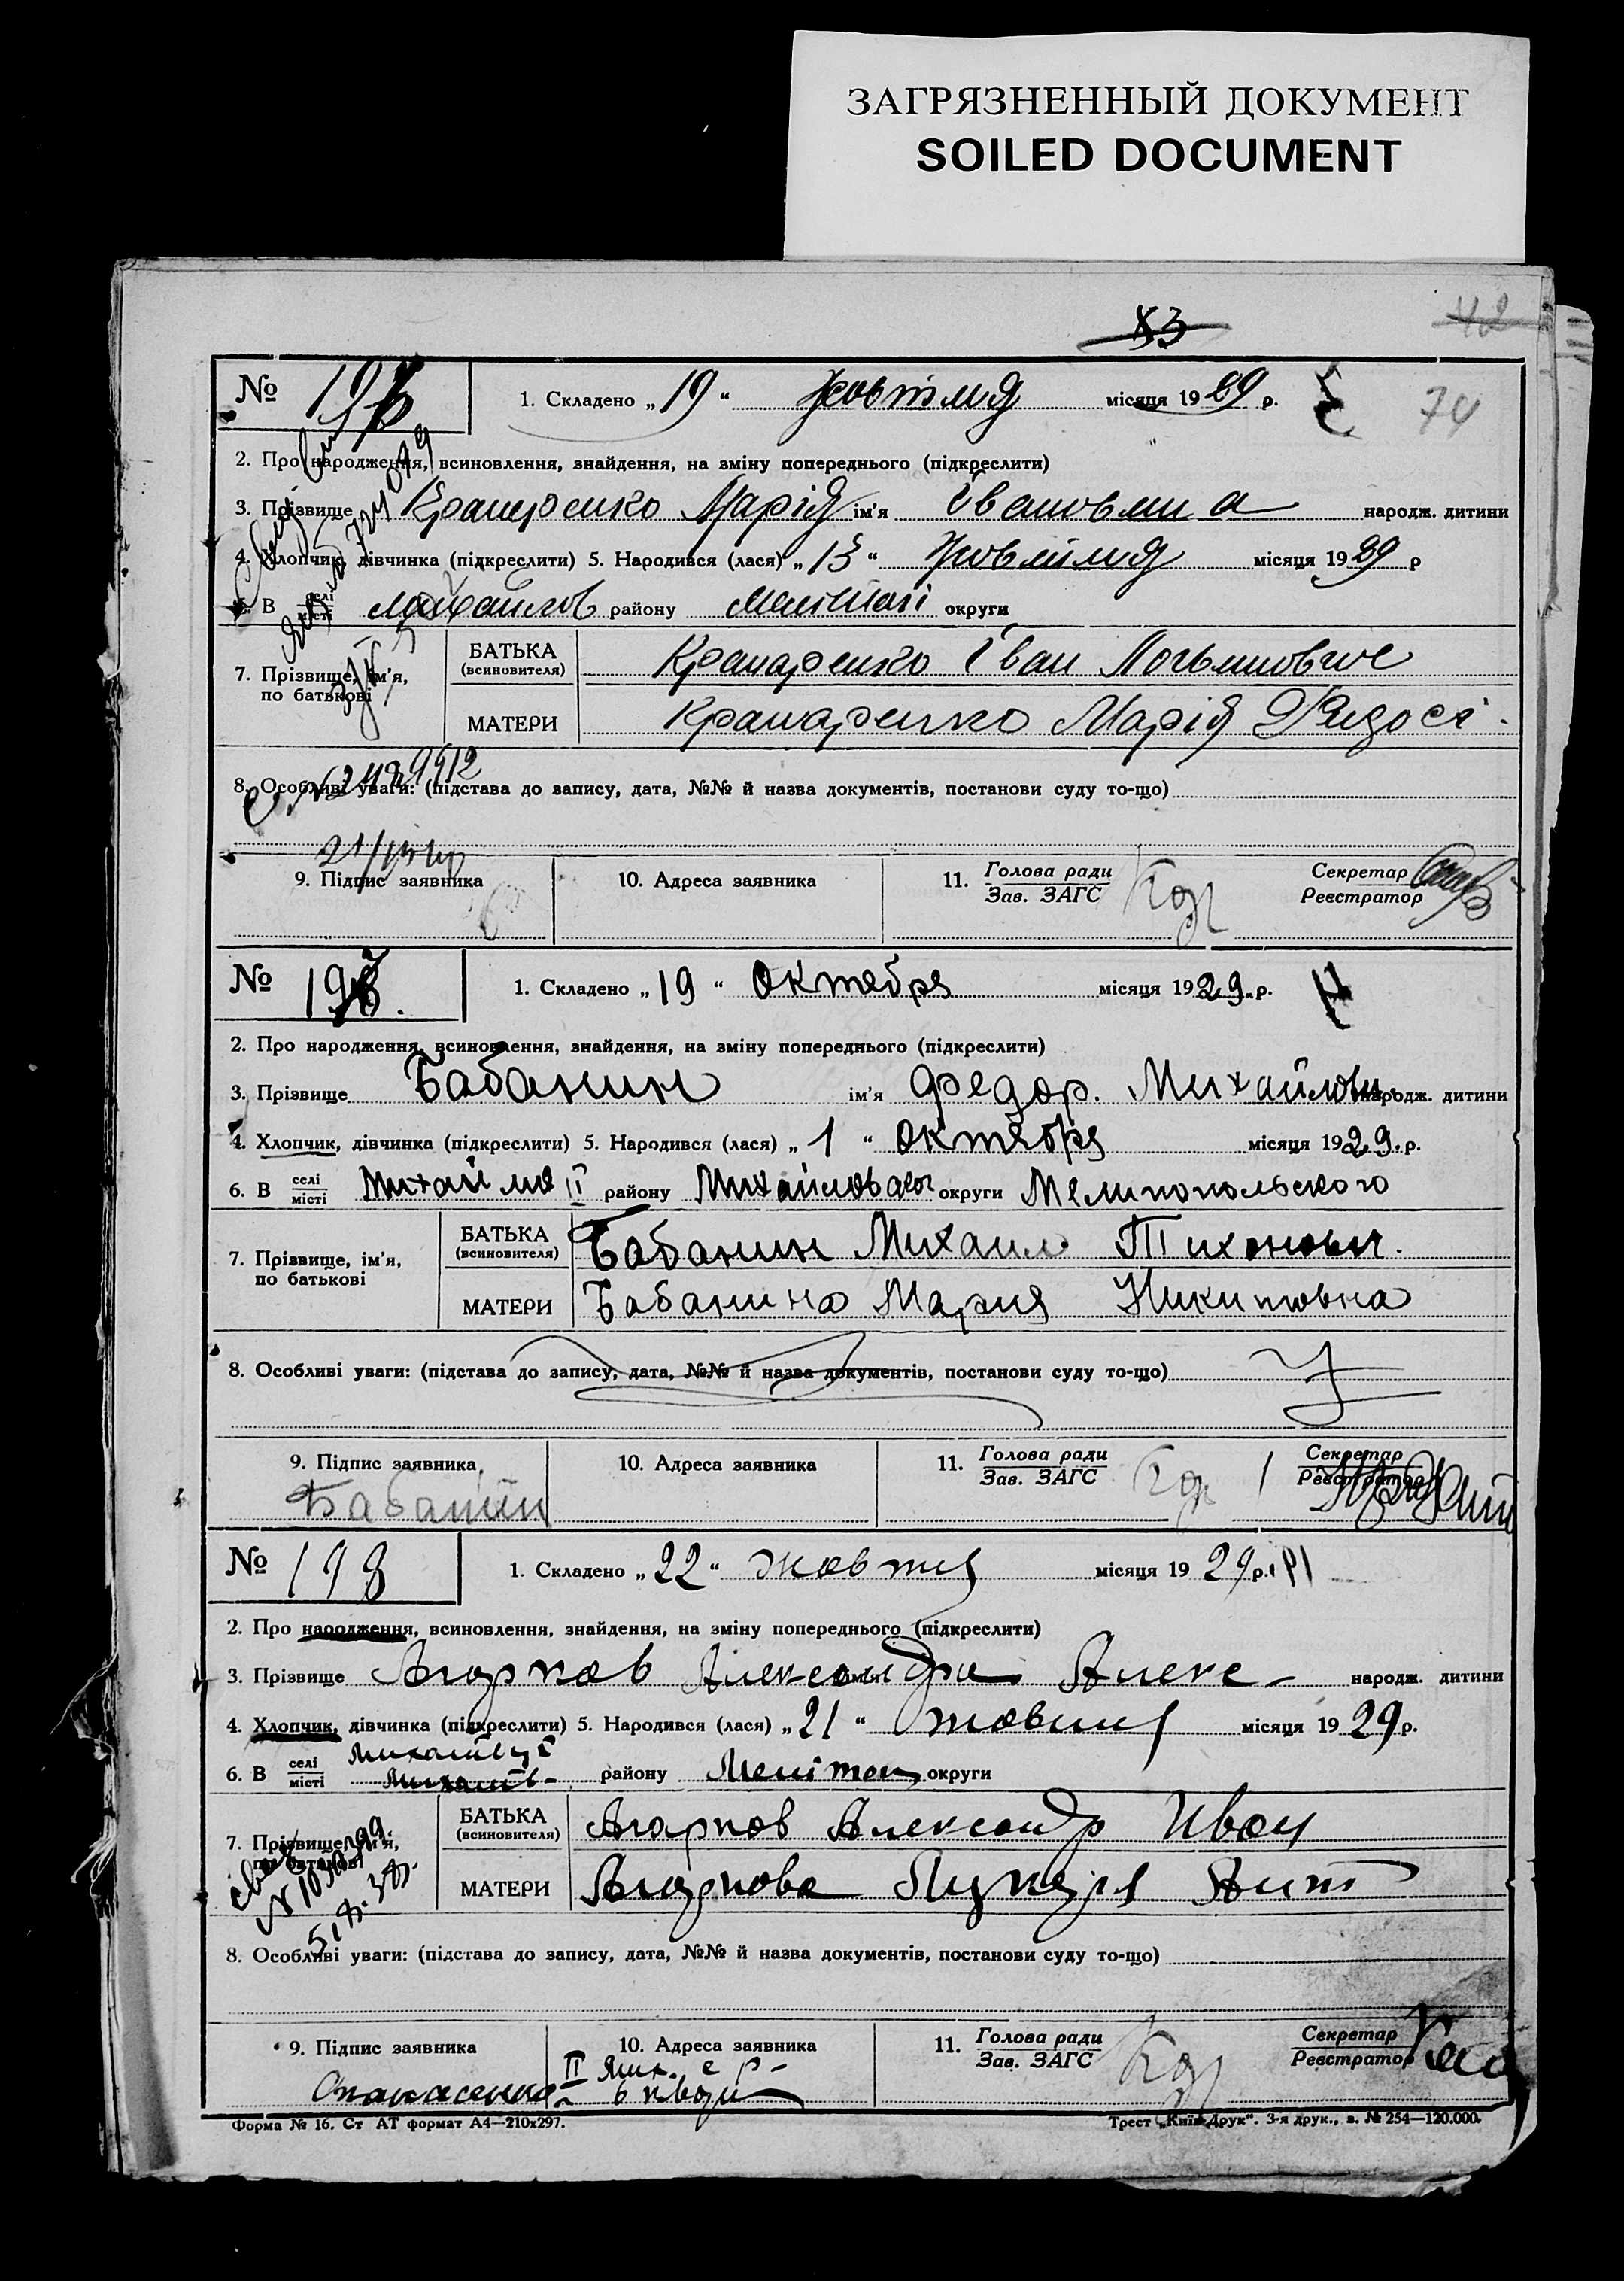 ЗАГРЯЗНЕННЫЙ ДОКУМЕНТ
SOILED DOCUMENT
83
42
74
№ 196
1. Складено „19“ Жовтня місяця 1929 р.
2. Про народження, всиновлення, знайдення, на зміну попереднього (підкреслити)
3. Прізвище Марія ім'я Івановна народж. дитини
4. Хлопчик, дівчинка (підкреслити) 5. Народився (лася) „13“ Жовтня місяця 1929 р
6. В селі місті Михайлов району Меліт округи
7. Прізвище, ім'я, по батькові
БАТЬКА (всиновителя) Іван
МАТЕРИ Марія
8. Особливі уваги: (підстава до запису, дата, №№ й назва документів, постанови суду то-що)
9. Підпис заявника
10. Адреса заявника
11. Голова ради Зав. ЗАГС
Секретар Реєстратор
№ 197.
1. Складено „19“ Октября місяця 1929. р.
2. Про народження, всиновлення, знайдення, на зміну попереднього (підкреслити)
3. Прізвище Бабанин ім'я Федор. Михайлович народж. дитини
4. Хлопчик, дівчинка (підкреслити) 5. Народився (лася) „1“ Октября місяця 1929. р.
6. В селі місті Михайлов II району Михайловского округи Мелитопольского
7. Прізвище, ім'я, по батькові
БАТЬКА (всиновителя) Бабанин Михаил Тихонович.
МАТЕРИ Бабанина Мария Никитовна
8. Особливі уваги: (підстава до запису, дата, №№ й назва документів, постанови суду то-що)
9. Підпис заявника Бабанин
10. Адреса заявника
11. Голова ради Зав. ЗАГС
Секретар Реєстратор
№ 198
1. Складено „22“ жовтня місяця 1929 р.
2. Про народження, всиновлення, знайдення, на зміну попереднього (підкреслити)
3. Прізвище Агарков Александр Алекс- народж. дитини
4. Хлопчик, дівчинка (підкреслити) 5. Народився (лася) „21“ жовтня місяця 1929 р.
6. В селі місті району Меліт округи
7. Прізвище, ім'я, по батькові
БАТЬКА (всиновителя) Агарков Александр Иван
МАТЕРИ Агаркова Ант
8. Особливі уваги: (підстава до запису, дата, №№ й назва документів, постанови суду то-що)
9. Підпис заявника
10. Адреса заявника
11. Голова ради Зав. ЗАГС
Секретар Реєстратор
Форма № 16. Ст АТ формат А4—210х297.
Трест „Київ-Друк“. 3-я друк., з. № 254—120.000.